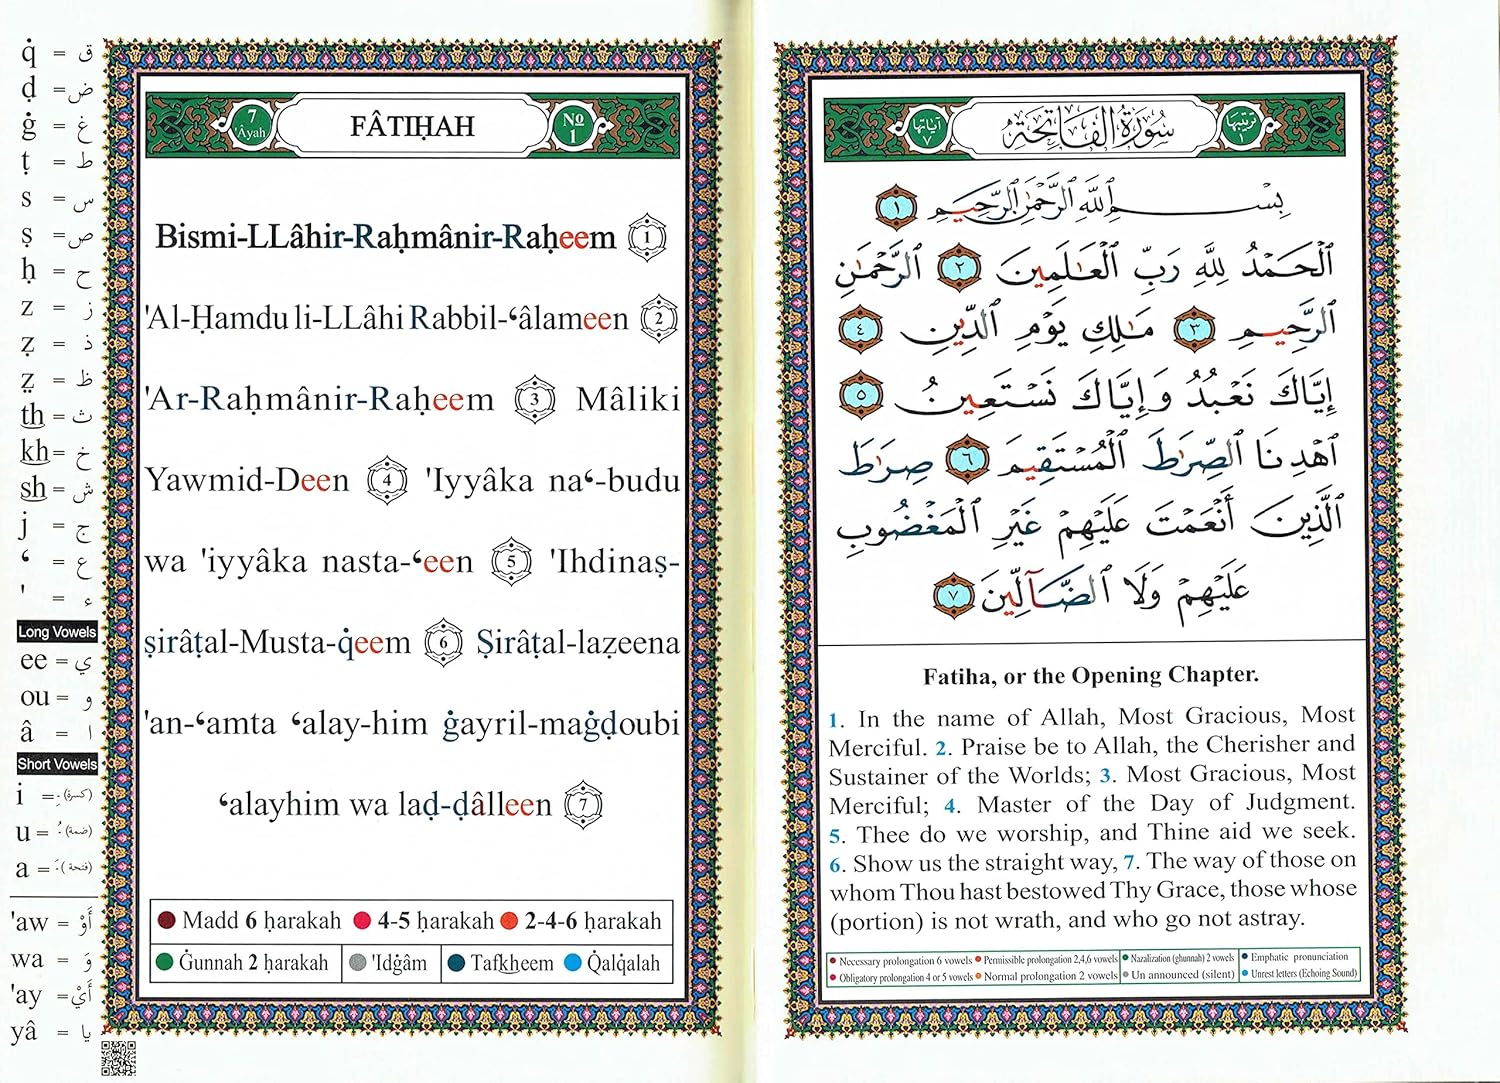 q̇ = ق
ḍ = ض
ġ = غ
ṭ = ط
s = س
ṣ = ص
ḥ = ح
z = ز
ẓ = ذ
ẓ̤ = ظ
th = ث
kh = خ
sh = ش
j = ج
‘ = ع
' = ء
Long Vowels
ee = ي
ou = و
â = ا
Short Vowels
i = ـِ (كسرة)
u = ـُ (ضمة)
a = ـَ (فتحة)
'aw = أَوْ
wa = وَ
'ay = أَيْ
yâ = يا
7 'Âyah
FÂTIḤAH
No 1
Bismi-LLâhir-Raḥmânir-Raḥeem 1
'Al-Ḥamdu li-LLâhi Rabbil-‘âlameen 2
'Ar-Raḥmânir-Raḥeem 3 Mâliki
Yawmid-Deen 4 'Iyyâka na‘-budu
wa 'iyyâka nasta-‘een 5 'Ihdinaṣ-
ṣirâṭal-Musta-q̇eem 6 Ṣirâṭal-laẓeena
'an-‘amta ‘alay-him ġayril-maġḍoubi
‘alayhim wa laḍ-ḍâlleen 7
Madd 6 ḥarakah 4-5 ḥarakah 2-4-6 ḥarakah
Ġunnah 2 ḥarakah 'Idġâm Tafkheem Q̇alq̇alah
ترتيبها ١
سُورَةُ الفَاتِحَة
آياتها ٧
بِسْمِ ٱللَّهِ ٱلرَّحْمَٰنِ ٱلرَّحِيمِ ١
ٱلْحَمْدُ لِلَّهِ رَبِّ ٱلْعَٰلَمِينَ ٢ ٱلرَّحْمَٰنِ
ٱلرَّحِيمِ ٣ مَٰلِكِ يَوْمِ ٱلدِّينِ ٤
إِيَّاكَ نَعْبُدُ وَإِيَّاكَ نَسْتَعِينُ ٥
ٱهْدِنَا ٱلصِّرَٰطَ ٱلْمُسْتَقِيمَ ٦ صِرَٰطَ
ٱلَّذِينَ أَنْعَمْتَ عَلَيْهِمْ غَيْرِ ٱلْمَغْضُوبِ
عَلَيْهِمْ وَلَا ٱلضَّآلِّينَ ٧
Fatiha, or the Opening Chapter.
1. In the name of Allah, Most Gracious, Most
Merciful. 2. Praise be to Allah, the Cherisher and
Sustainer of the Worlds; 3. Most Gracious, Most
Merciful; 4. Master of the Day of Judgment.
5. Thee do we worship, and Thine aid we seek.
6. Show us the straight way, 7. The way of those on
whom Thou hast bestowed Thy Grace, those whose
(portion) is not wrath, and who go not astray.
Necessary prolongation 6 vowels Permissible prolongation 2,4,6 vowels Nazalization (ghunnah) 2 vowels Emphatic pronunciation
Obligatory prolongation 4 or 5 vowels Normal prolongation 2 vowels Un announced (silent) Unrest letters (Echoing Sound)